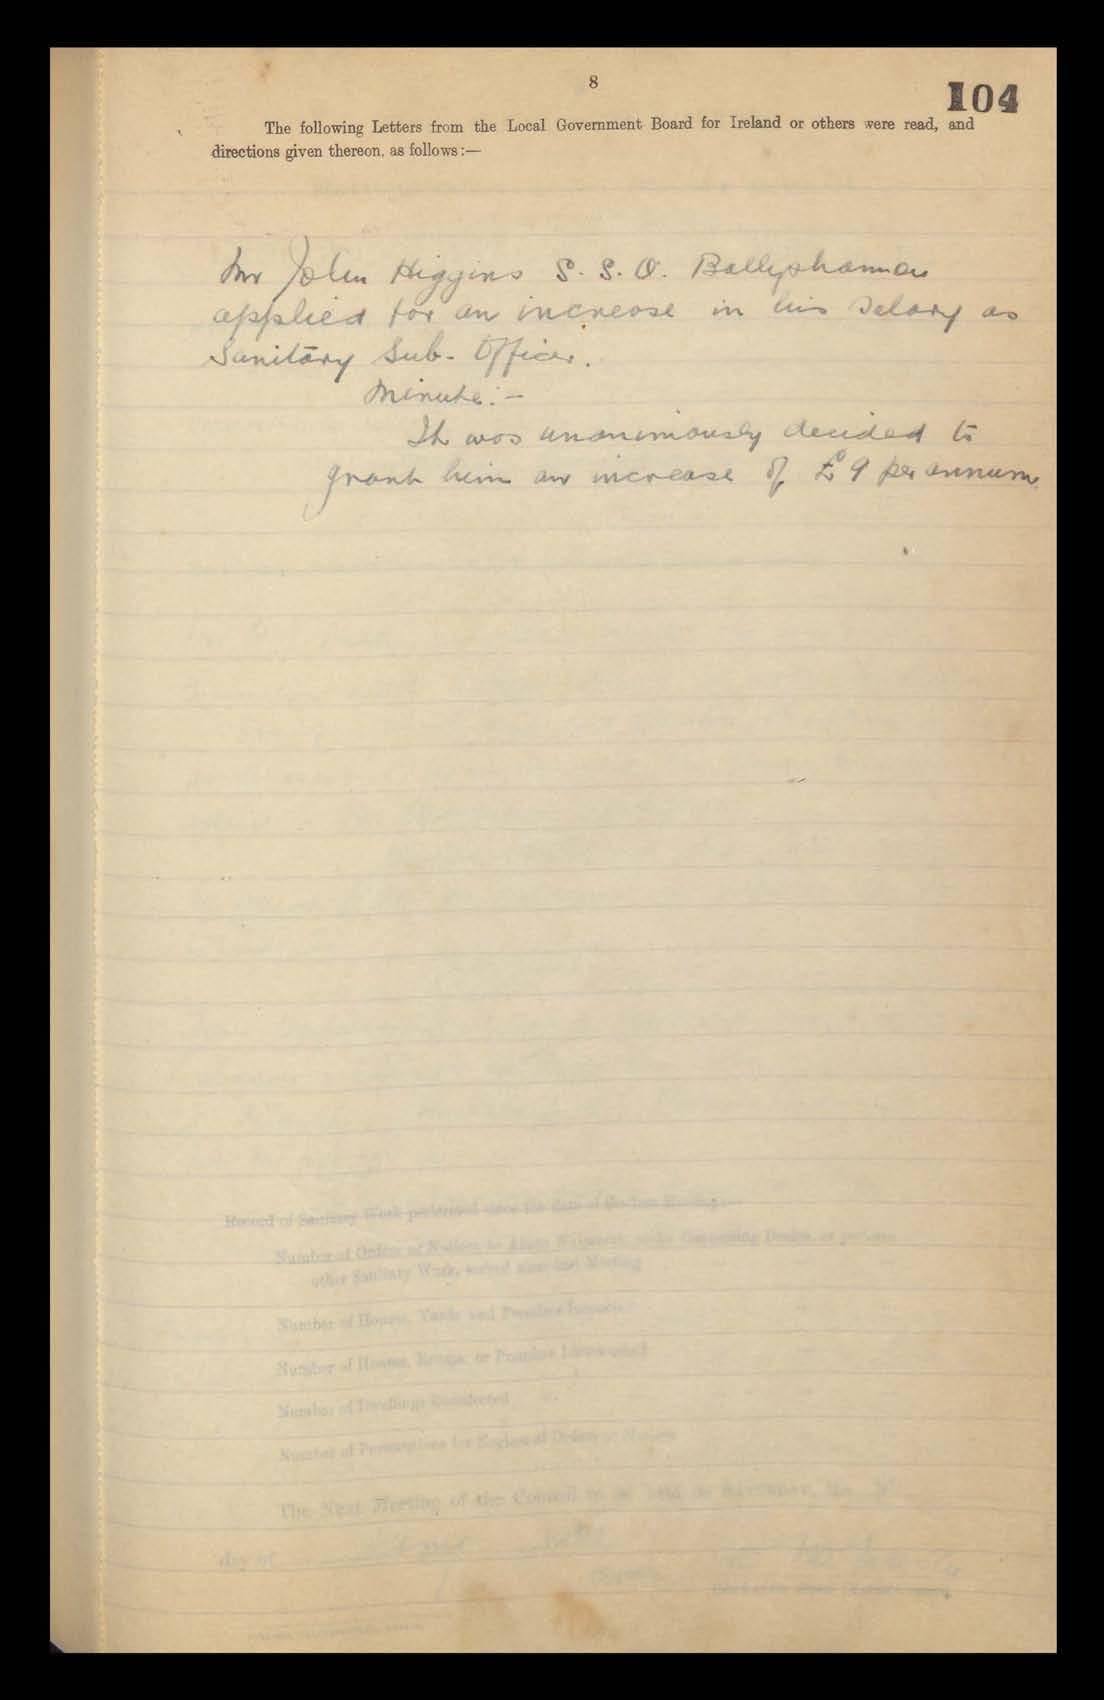 8
104
The following Letters from the Local Government Board for Ireland or others were read, and
directions given thereon, as follows:—
Mr John Higgins S. S. O. Ballyshannon
applied for an increase in his Salary as
Sanitary Sub-Officer.
Minute:—
It was unanimously decided to
grant him an increase of £9 per annum
Record of Sanitary Work performed since the date of the last Meeting:—
Number of Orders or Notices to Abate Nuisances, under
other Sanitary Work, served since last Meeting
Number of Houses, Yards and Premises Inspected
Number of Houses, Rooms, or Premises Limewashed
Number of Dwellings Disinfected
Number of Prosecutions for Neglect of Orders or Notices
The Next Meeting of the Council to be held on
day of